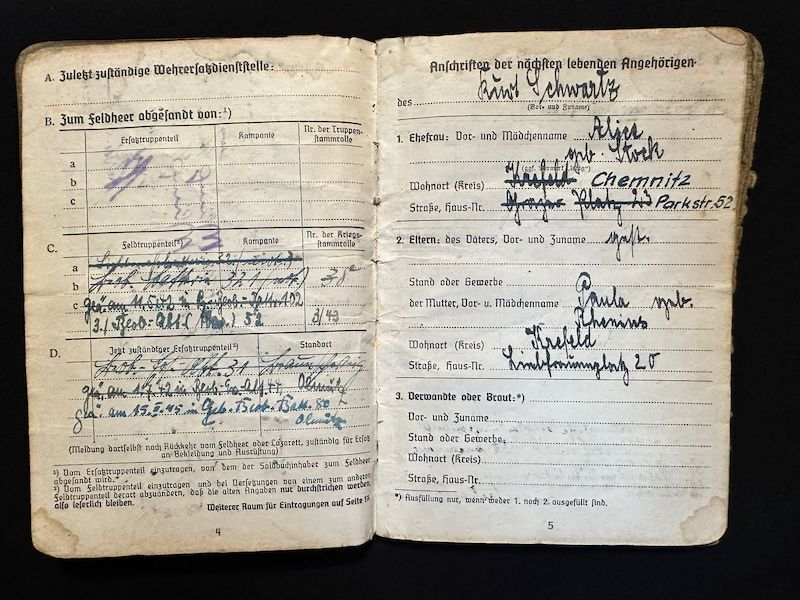 A. Zuletzt zuständige Wehrersatzdienststelle:
B. Zum Feldheer abgesandt von:¹)
Ersatztruppenteil
Kompanie
Nr. der Truppen-
stammrolle
a
b
c
C.
Feldtruppenteil²)
Kompanie
Nr. der Kriegs-
stammrolle
a
b
c
geä. am 11.5.42 in
102
3./ Beob.-Abt. 52
3/43
D.
Jetzt zuständiger Ersatztruppenteil²)
Standort
31 Braunschweig
geä. am Olmütz
geä. am in Beob. 80
Olmütz
(Meldung dortselbst nach Rückkehr vom Feldheer oder Lazarett, zuständig für Ersatz
an Bekleidung und Ausrüstung)
¹) Vom Ersatztruppenteil einzutragen, von dem der Soldbuchinhaber zum Feldheer
abgesandt wird.
²) Vom Feldtruppenteil einzutragen und bei Versetzungen von einem zum anderen
Feldtruppenteil derart abzuändern, daß die alten Angaben nur durchstrichen werden,
also leserlich bleiben.
Weiterer Raum für Eintragungen auf Seite 17.
4
Anschriften der nächsten lebenden Angehörigen
des Kurt Schwartz
(Vor- und Zuname)
1. Ehefrau: Vor- und Mädchenname Alice
geb. Stock
Wohnort (Kreis) Krefeld Chemnitz
Straße, Haus-Nr. Platz 23 Parkstr. 52.
2. Eltern: des Vaters, Vor- und Zuname gest.
Stand oder Gewerbe
der Mutter, Vor- u. Mädchenname Paula geb.
Rhenius
Wohnort (Kreis) Krefeld
Straße, Haus-Nr. 20
3. Verwandte oder Braut:*)
Vor- und Zuname
Stand oder Gewerbe
Wohnort (Kreis)
Straße, Haus-Nr.
*) Ausfüllung nur, wenn weder 1. noch 2. ausgefüllt sind.
5